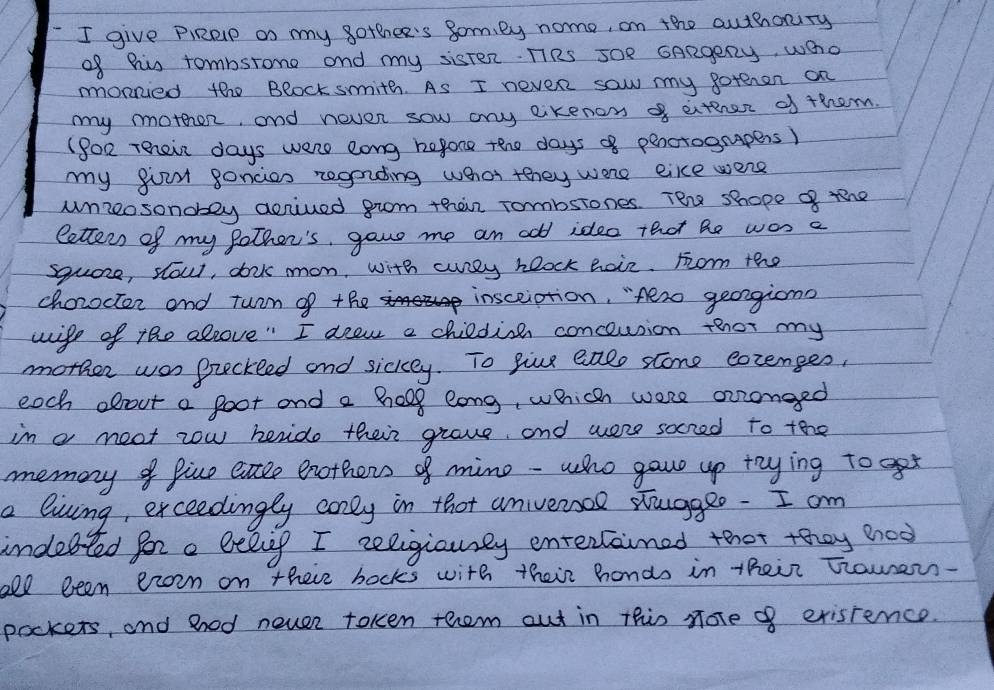 - I give PIRRIP as my father's family name, on the authority
of his tombstone and my sister - MRS JOE GARgERy, who
married the Blacksmith. As I never saw my father or
my mother, and never saw any likeness of either of them.
(for their days were long before the days of photographs)
my first fancies regarding what they were like were
unreasonably derived from their Tombstones. The shape of the
letters of my father's, gave me an odd idea that he was a
square, stout, dark man, with curly black hair. From the
character and turn of the insceiption, "Also georgiana
wife of the above" I drew a childish conclusion that my
mother was freckled and sickly. To five little stone lozenges,
each about a foot and a half long, which were arranged
in a neat row beside their grave, and were sacred to the
memory of five little brothers of mine - who gave up trying to get
a living, exceedingly early in that universal struggle - I am
indebted for a belief I religiously entertained that they had
all been born on their backs with their hands in their Trousers-
pockets, and had never taken them out in this state of existence.